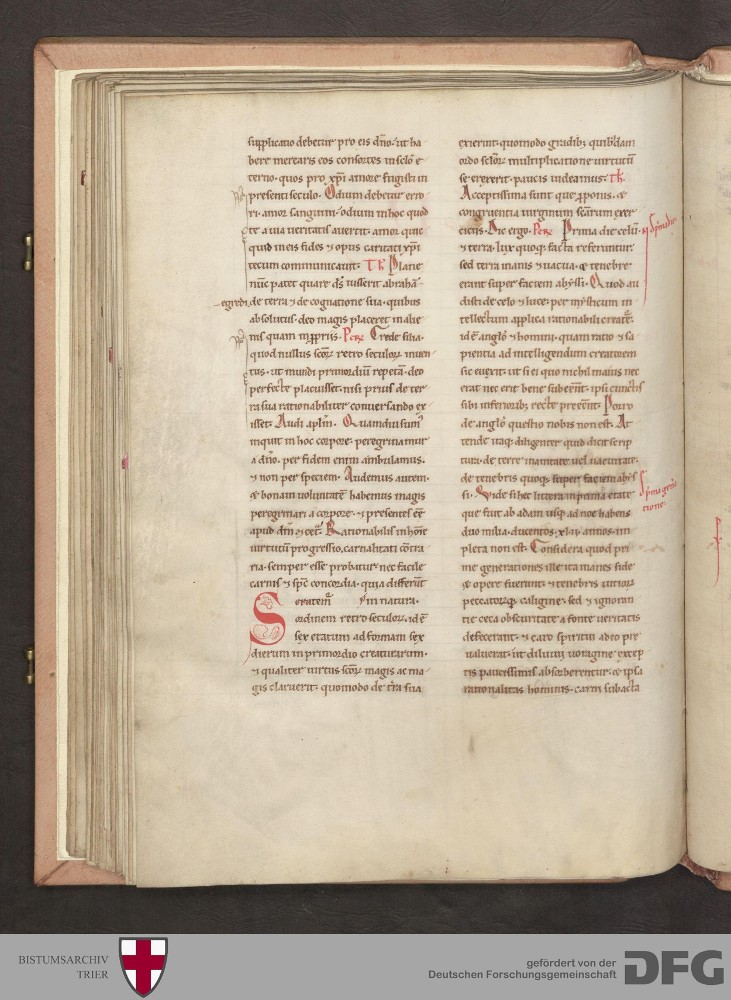 supplicatio debetur pro eis dño. ut ha
bere mereatis eos consortes in sclo e
terno. quos pro xp̄i amore fugistis in
presenti seculo. Odium debetur erro
ri. amor sanguini. odium in hoc quod
te a via veritatis avertit. amor quie
quid in eis fides & opus caritati xp̄i
tecum communicavit. Th̄ Plane
nūc patet quare d̄s iusserit abrahā
egredi de terra & de cognatione sua. quibus
absolutus. deo magis placeret in alie
nis quam in propriis. Per Crede filia
quod nullus scōꝝ retro seculoꝝ inven
tus. ut mundi primordiū repetā. deo
perfecte placuisset. nisi prius de ter
ra sua rationabiliter conversando ex
isset. Audi aplm̄. Quamdiu sumꝰ
inquit in hoc corpore. peregrinamur
a dño. per fidem enim ambulamus.
& non per speciem. Audemus autem.
& bonam voluntatē habemus magis
peregrinari a corpore. & presentes eē
apud dm̄ & cet̄. Rationabilis in hoīe
virtutū progressio, carnalitati cōtra
ria. semper esse probatur nec facile
carnis & spc̄ concordia. quia differūt
in natura.
Seratem̄
ordinem retro seculoꝝ. id ē
sex etatum ad formam sex
dierum in primordio creaturarum.
& qualiter virtus scōꝝ magis ac ma
gis claruerit. quomodo de t̄ra sua
exierint. quomodo gradibꝰ quibꝰdam
ordo scloꝝ multiplicatione virtutū
se erexerit. paucis videamus. Th̄.
Acceptissima sunt que p̄ponis. &
congruentia virginum sc̄arum exer
ciciis. Dic ergo. Per Prima die celū.
& terra. lux quoqꝫ facta referuntur
sed terra inanis & vacua. & tenebre
erant super faciem abyssi. Quod au
disti de celo & luce. per mysticum in
tellectum applica rationabili creatē.
id ē anglō & homini. quam ratio & sa
pientia ad intelligendum creatorem
sic evexit. ut si ei quo nichil maius nec
erat nec erit bene subeēnt. ipsi cunctis
sibi inferioribꝰ recte preeēnt. Porro
de anglō questio nobis non est. At
tende itaqꝫ diligenter quid dicit scrip
tura. de terre inanitate vel vacuitate.
de tenebris quoqꝫ super faciem abys
si. Vide si hec littera in prima etate
que fuit ab adam usqꝫ ad noe habens
duo milia. ducentos. xlii. annos. im
pleta non est. Considera quod pri
me generationes ille inanes fide
& opere fuerunt. & tenebris vitioꝝ
peccatorūqꝫ caligine. sed & ignoran
tie ceca obscuritate a fonte veritatis
defecerant. & caro spiritui adeo pre
valuerat. ut diluvii voragine excep
tis paucissimis absorberentur. & ipsa
rationalitas hominis. carni subacta
Prima dies
Prima gen̄a
tione.
BISTUMSARCHIV
TRIER
gefördert von der
Deutschen Forschungsgemeinschaft
DFG